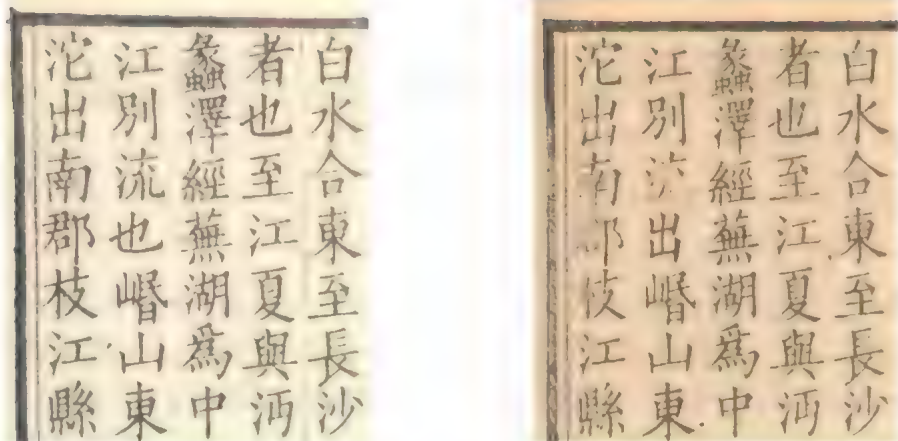 白水合東至長沙
者也至江夏與沔
蠡澤經蕪湖爲中
江別流也崏山東
沱出南郡枝江縣
白水合東至長沙
者也至江夏與沔
蠡澤經蕪湖爲中
江別流出崏山東
沱出南郡枝江縣